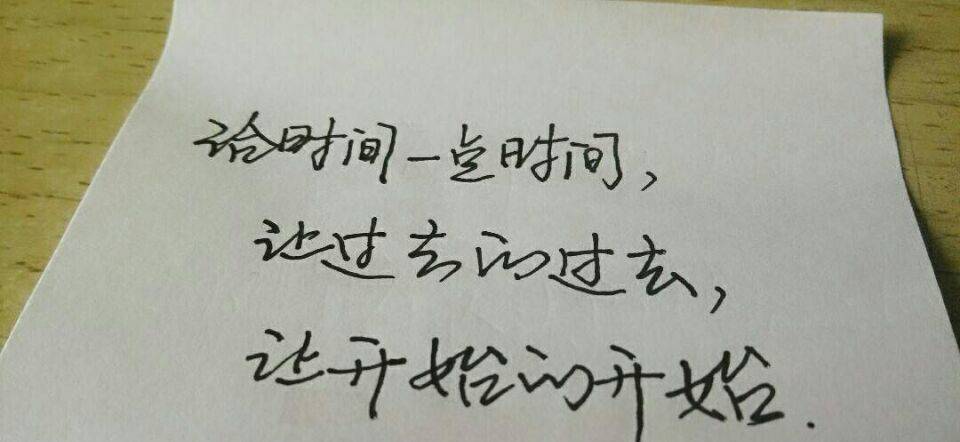 给时间一点时间,
让过去的过去,
让开始的开始.